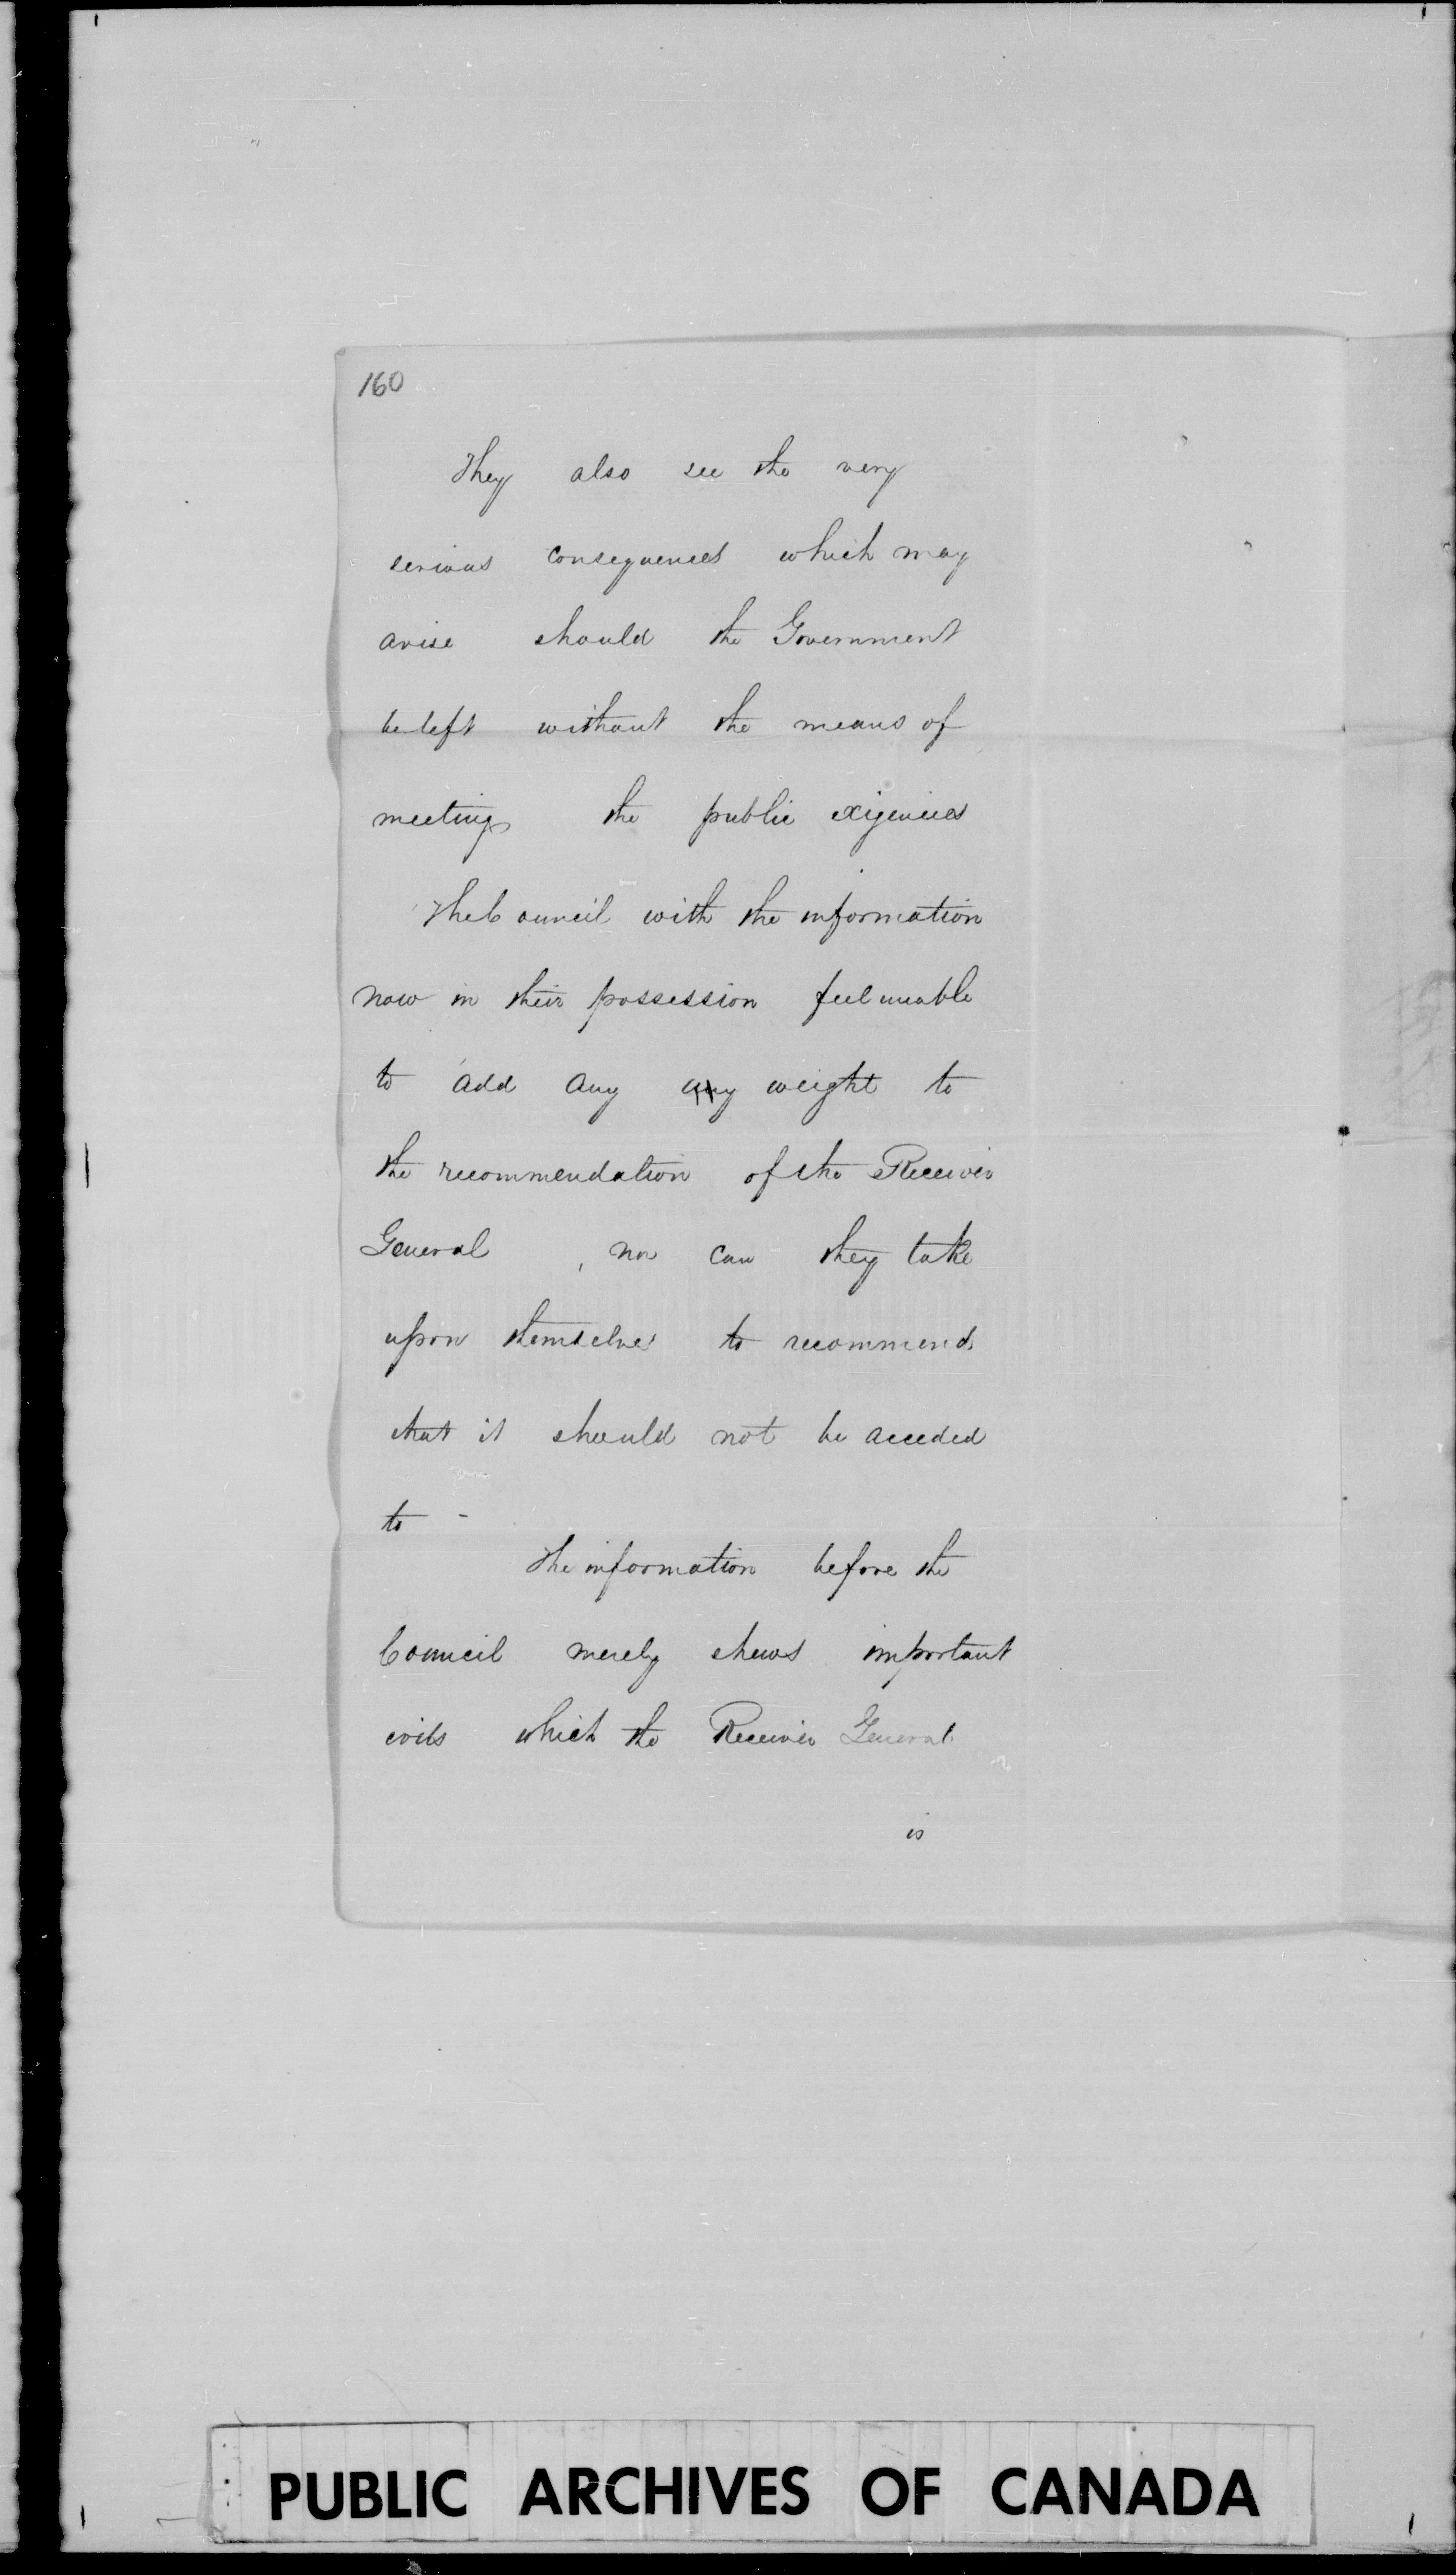 160
They also see the very
serious consequences which may
arise should the Government
be left without the means of
meeting the public exigencies
The Council with the information
now in their possession feel unable
to add any any weight to
the recommendation of the Receiver
General , nor can they take
upon themselves to recommend
that it should not be acceded
to -
The information before the
Council merely shews important
evils which the Receiver General
is
PUBLIC ARCHIVES OF CANADA